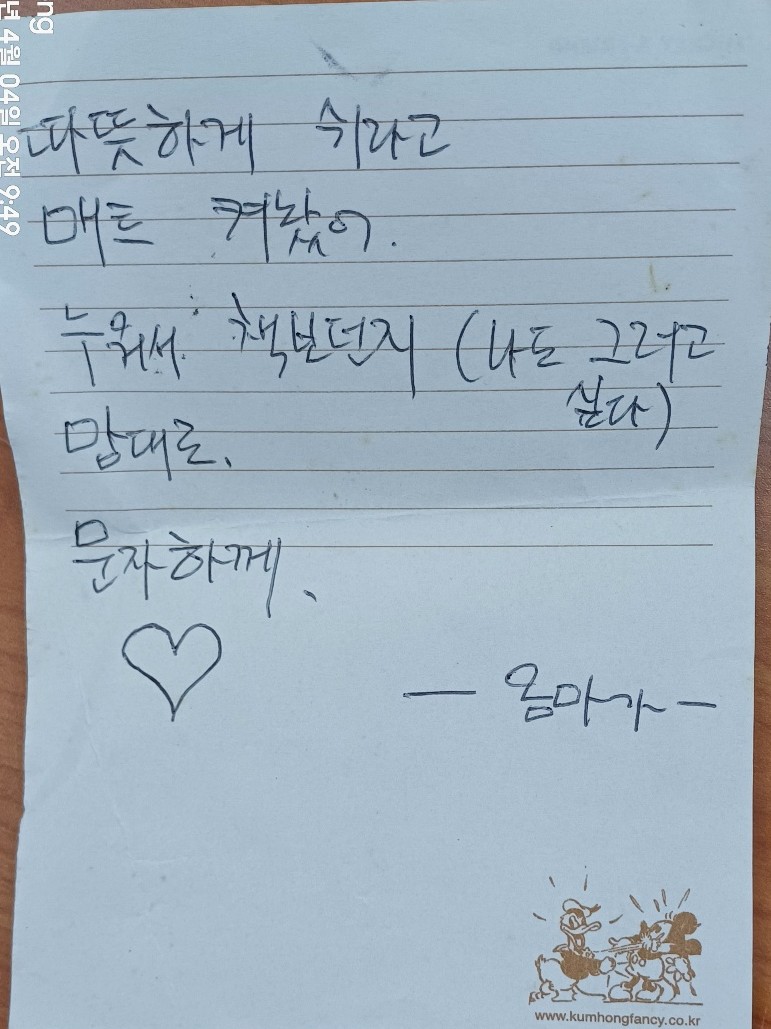 ng
년 4월 04일 오전 9:49
따뜻하게 쉬라고
매트 켜놨어.
누워서 책보던지 (나도 그러고
싶다)
맘대로.
문자하께.
- 엄마가 -
www.kumhongfancy.co.kr